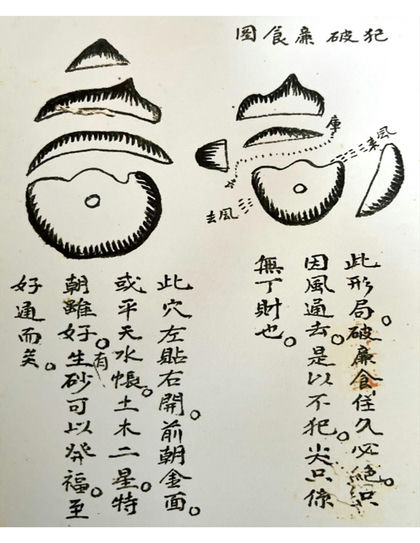 犯破廉食圖
庫
来風
去風
此形局。破廉食住久必絕。只
因風過去。是以不犯。尖只係
無丁財也。
此穴左貼右開。前朝金面。
或平天水帳。土木二星特
朝雖好。有生砂可以發福。至
好通而矣。